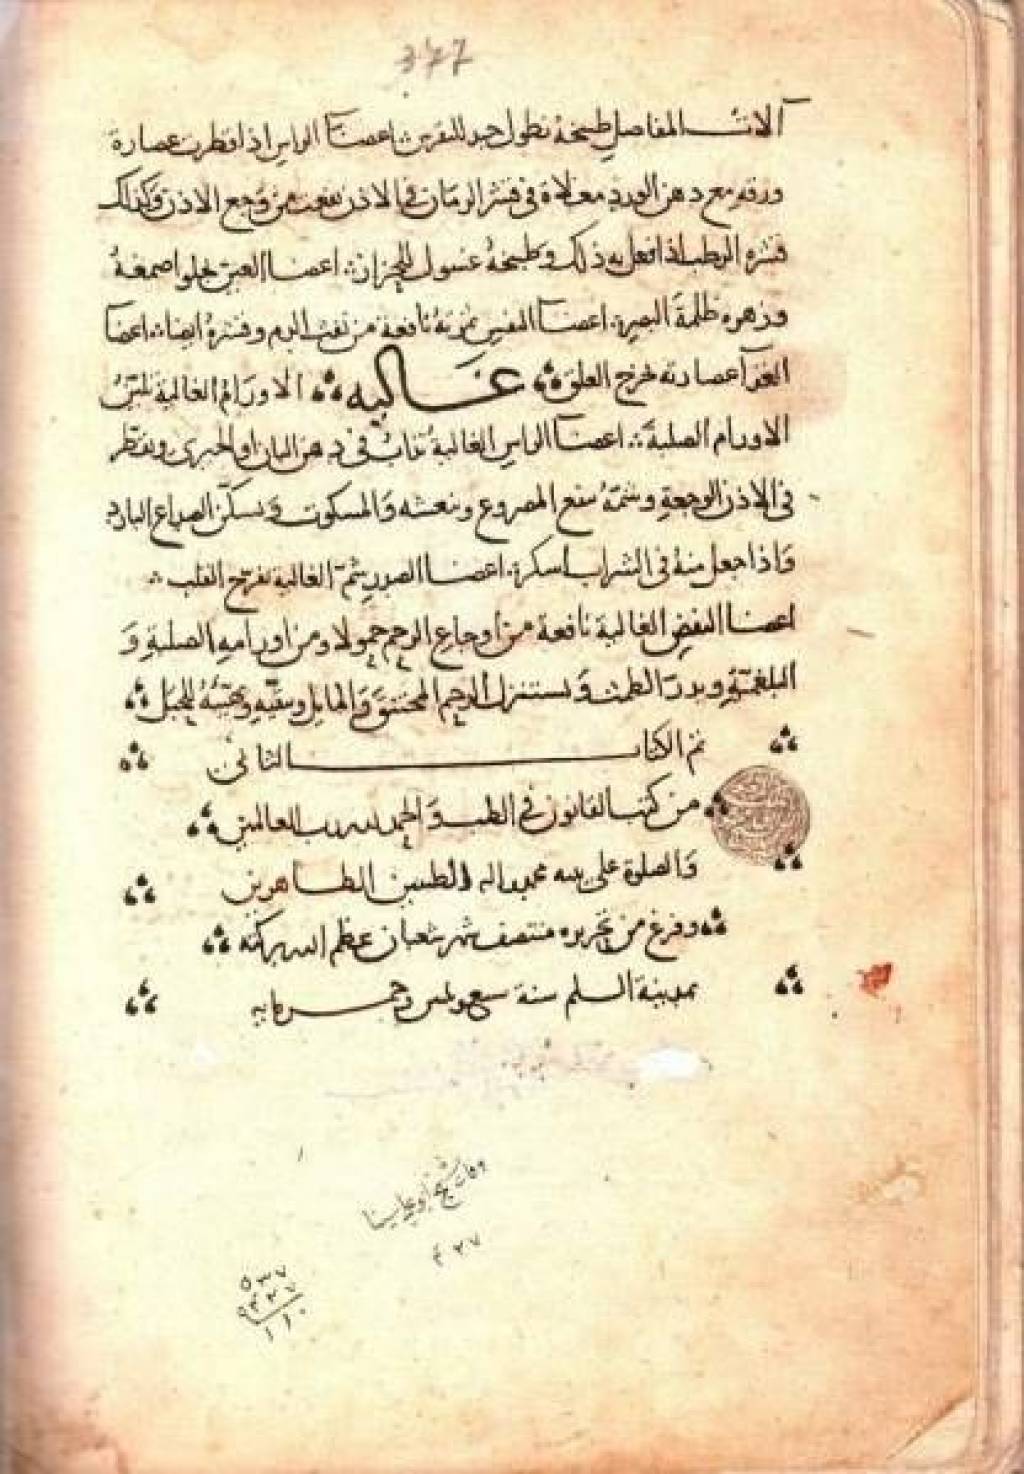 377
آلات المفاصل طبيخه نطول جيد للنقرس اعضآ الراس اذا قطرت عصارة
ورقه مع دهن الورد مغلاة فى قشر الرمان فى الاذن نفعت من وجع الاذن وكذلك
قشره الرطب اذا فعل به ذلك وطبيخه غسول اعضا العين يجلو اصمغه
وزهره ظلمة البصر اعضآ النفس نافعة من نفث الدم وقشره ايضا اعضا
الغذآ عصارته تخرج العلق غاليه الاورام الغالية تلين
الاورام الصلبة اعضآ الراس الغالية تذاب فى دهن البان او الخيرى وتقطر
فى الاذن الوجعة وشمه ينفع المصروع وينعشه والمسكوت ويسكن الصداع البارد
واذا جعل منه فى الشراب اسكر اعضا الصدر شم الغالية يفرح القلب
اعضا النفض الغالية نافعة من اوجاع الرحم حمولا ومن اورامه الصلبة و
البلغمية ويدر الطمث ويستنزل الرحم المختنق والمايل وينقيه ويهيئه للحبل
تم الكتاب الثانى
من كتب القانون فى الطب والحمد لله رب العالمين
والصلوة على نبيه محمد واله الطيبين الطاهرين
وفرغ من تحريره منتصف شهر شعبان عظم الله بركته
بمدينة السلم سنة سبع وثلثين وخمس مايه
وفات شيخ ابو على سينا
۴۲۷
۵۳۷
۴۲۷
۱۱۰